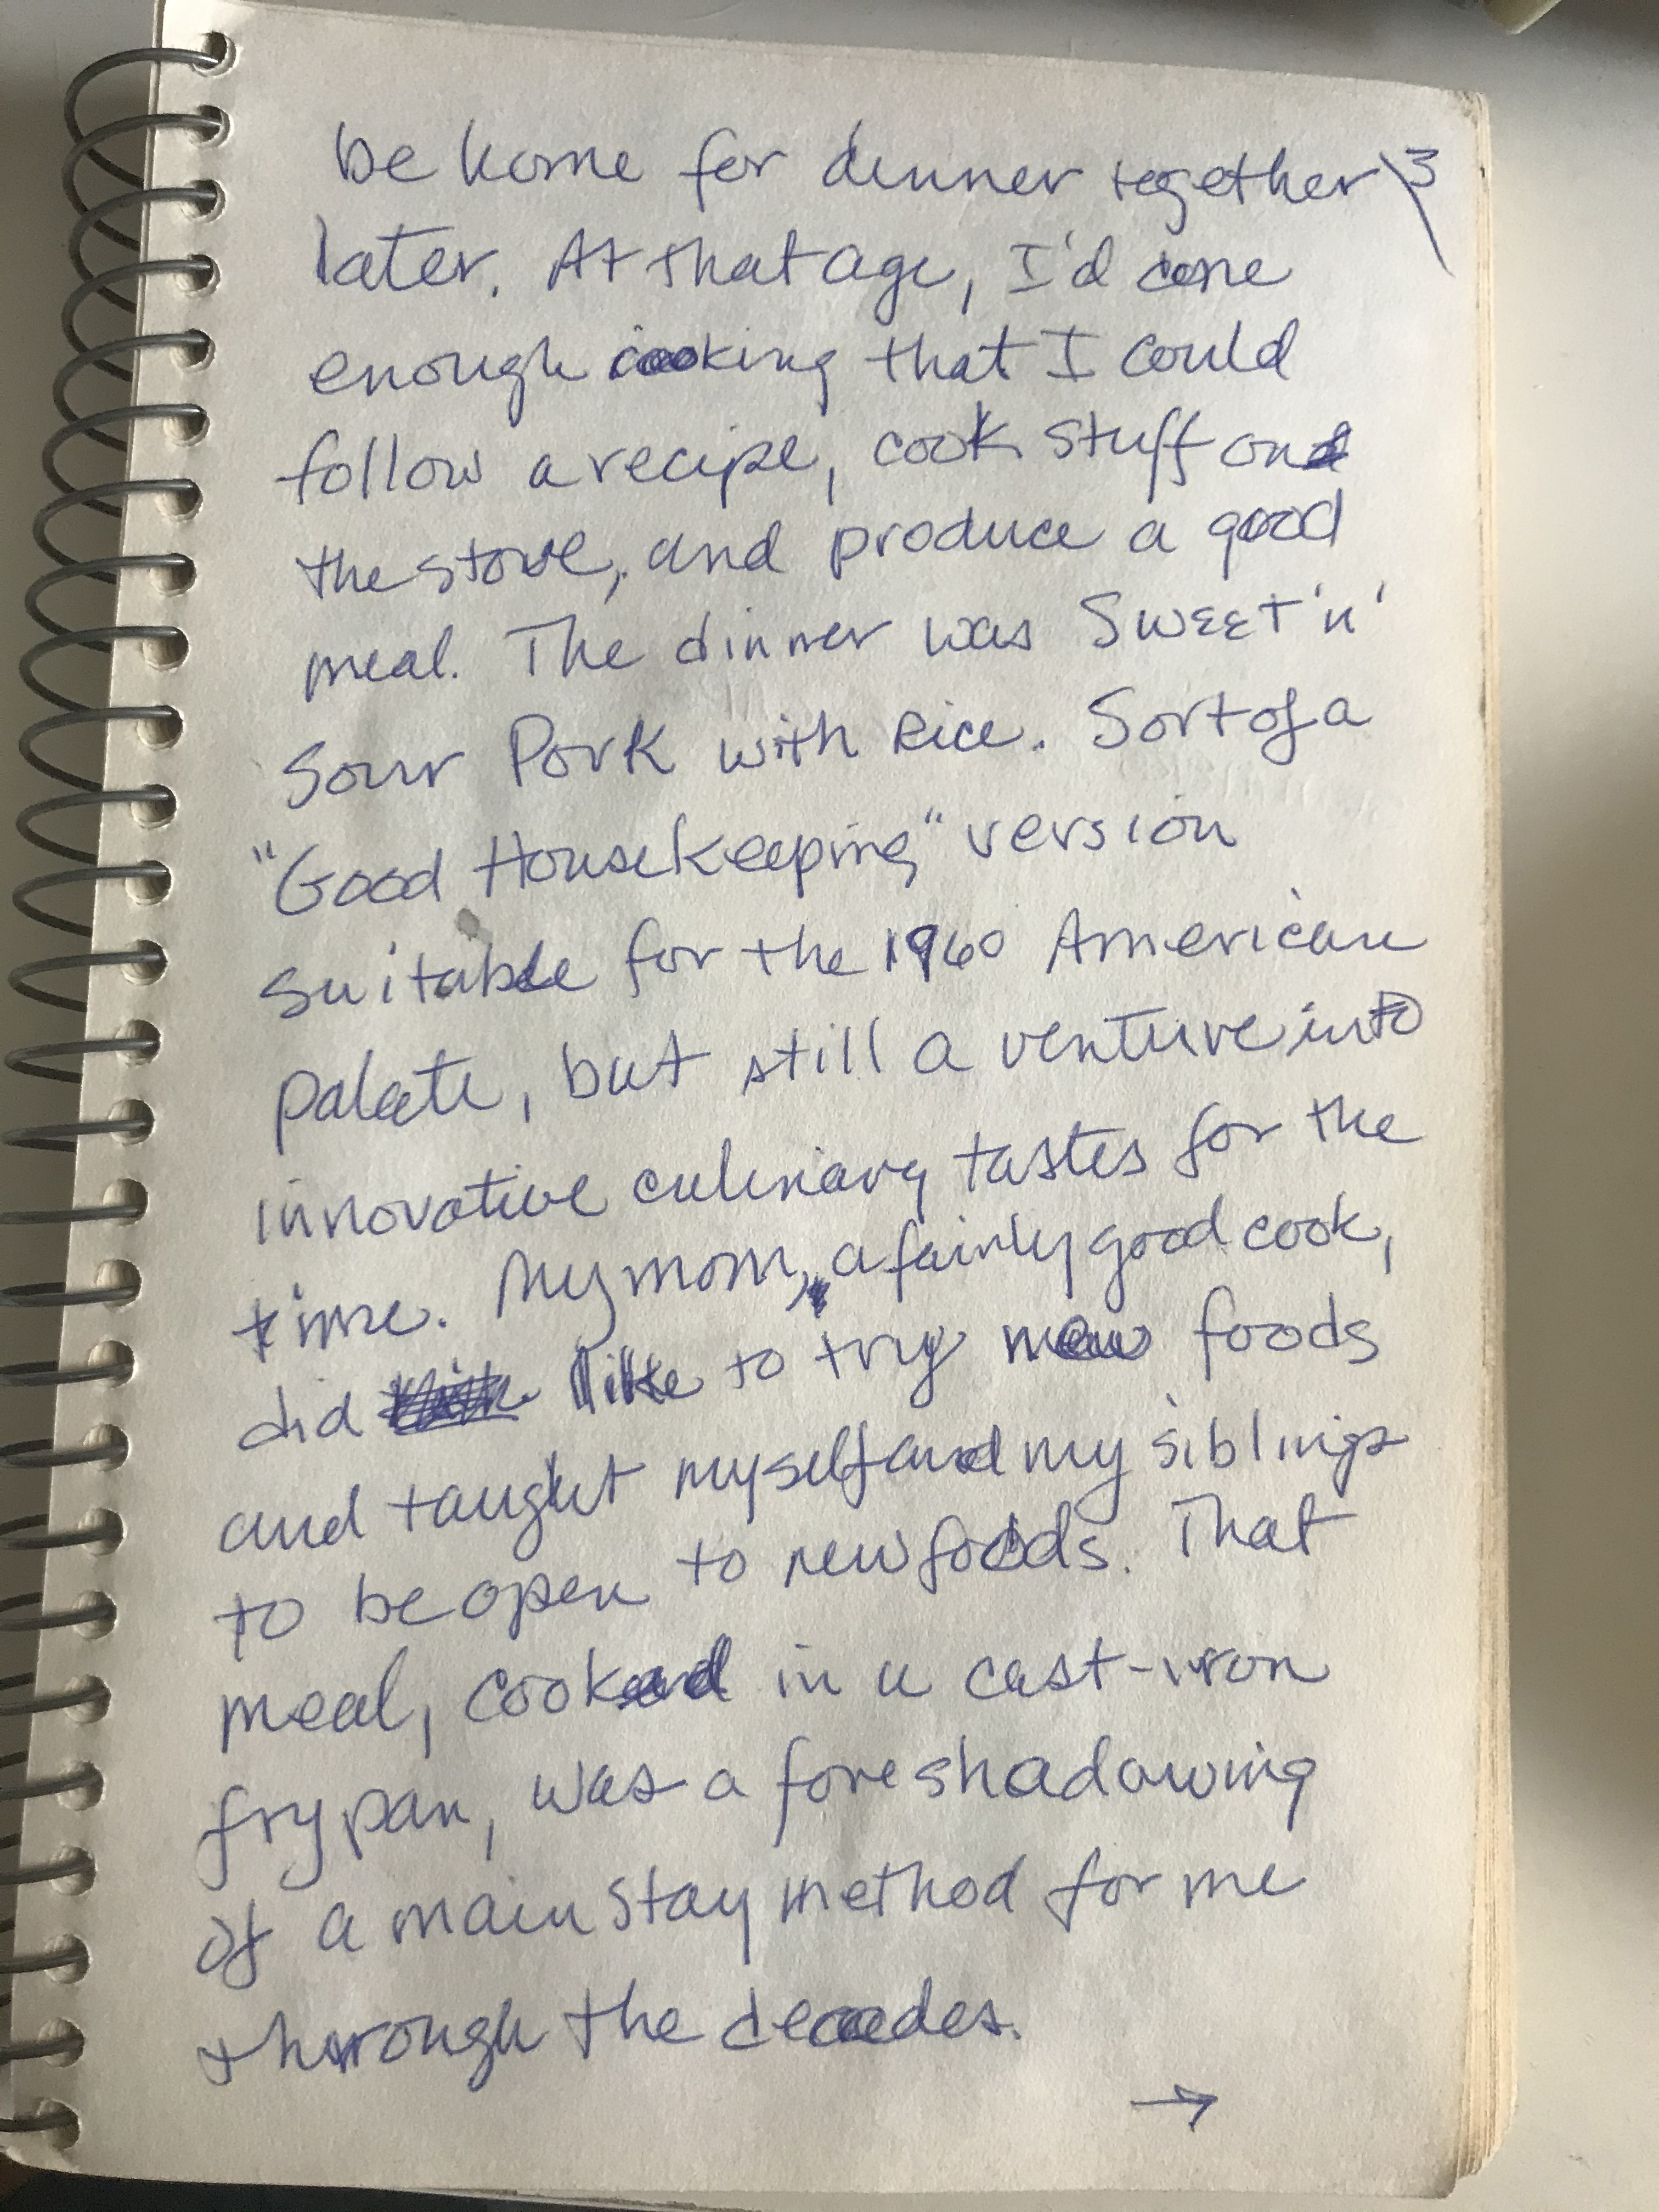 be home for dinner together 3
later. At that age, I'd done
enough cooking that I could
follow a recipe, cook stuff on
the stove, and produce a good
meal. The dinner was Sweet 'n'
Sour Pork with Rice. Sort of a
"Good Housekeeping" version
suitable for the 1960 American
palate, but still a venture into
innovative culinary tastes for the
time. My mom, a fairly good cook,
did like to try new foods
and taught myself and my siblings
to be open to new foods. That
meal, cooked in a cast-iron
fry pan, was a foreshadowing
of a main stay method for me
through the decades.
→